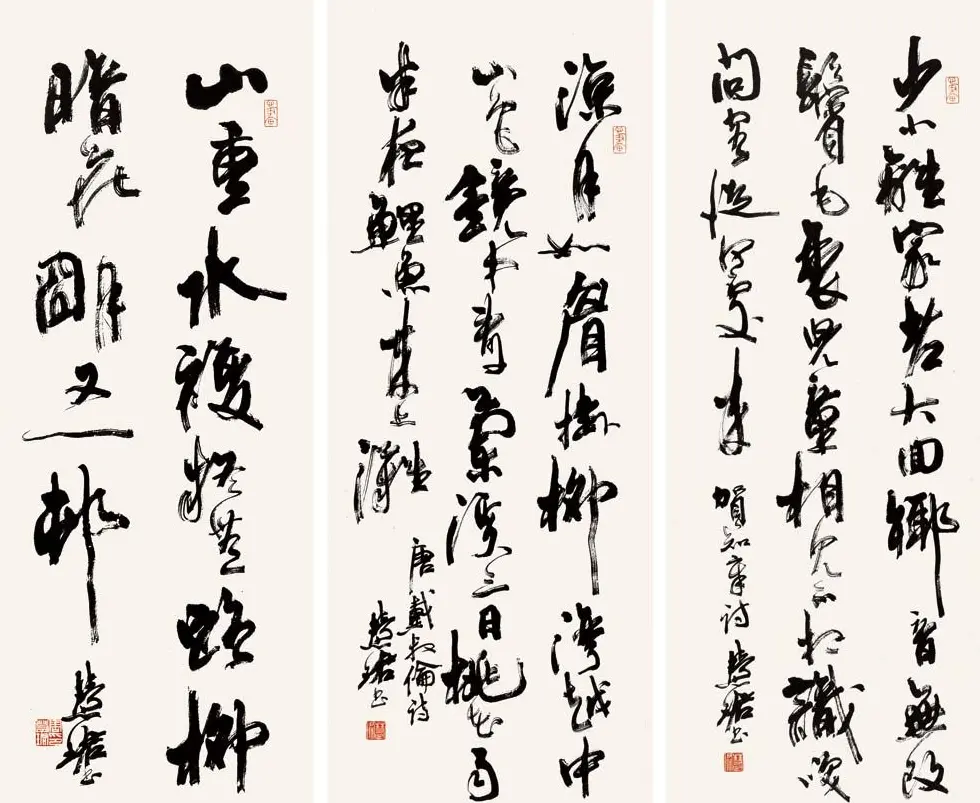 少小離家老大回鄉音無改
鬢毛衰兒童相見不相識咲
問客從何處來 賀知章詩 慧珺書
涼月如眉掛柳灣越中
山色鏡中看蘭溪三日桃花雨
半夜鯉魚來上灘
唐戴叔倫詩
慧珺書
山重水複疑無路柳
暗花朙又一村 慧珺書